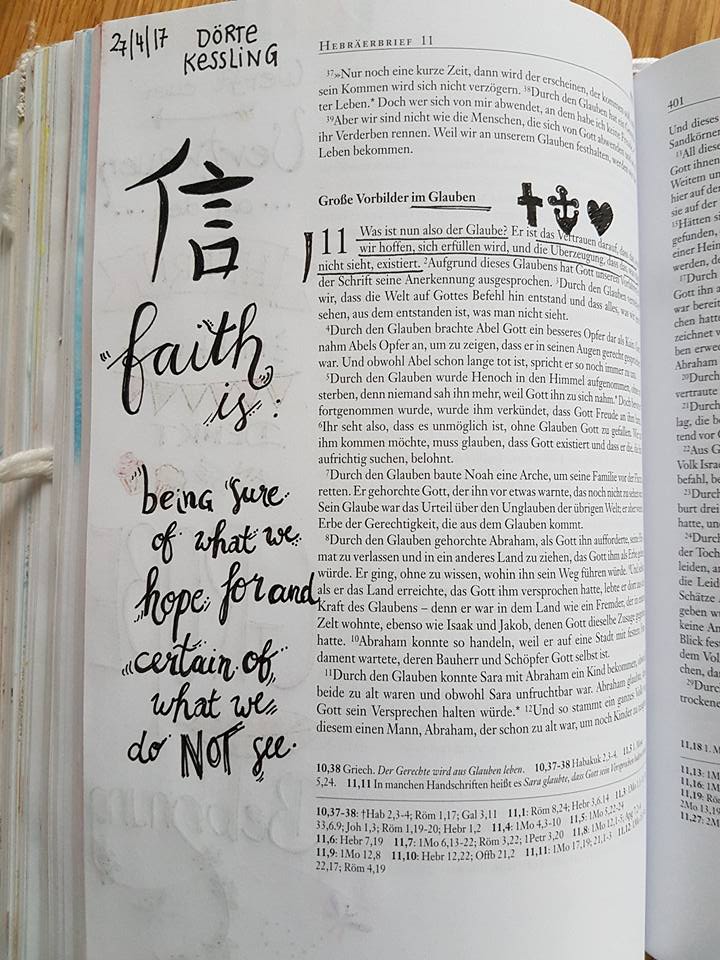 27/4/17 DÖRTE
KESSLING
信
"faith"
is:
being sure
of what we
hope for and
certain of
what we
do NOT see.
HEBRÄERBRIEF 11
37»Nur noch eine kurze Zeit, dann wird der erscheinen, der kommen
sein Kommen wird sich nicht verzögern. 38Durch den Glauben hat ein
ter Leben.* Doch wer sich von mir abwendet, an dem habe ich keine
39Aber wir sind nicht wie die Menschen, die sich von Gott abwenden
ihr Verderben rennen. Weil wir an unserem Glauben festhalten, werden
Leben bekommen.
Große Vorbilder im Glauben
11 Was ist nun also der Glaube? Er ist das Vertrauen darauf, dass
wir hoffen, sich erfüllen wird, und die Überzeugung, dass das, was
nicht sieht, existiert. 2Aufgrund dieses Glaubens hat Gott unseren Vorfahren
der Schrift seine Anerkennung ausgesprochen. 3Durch den Glauben
wir, dass die Welt auf Gottes Befehl hin entstand und dass alles, was wir
sehen, aus dem entstanden ist, was man nicht sieht.
4Durch den Glauben brachte Abel Gott ein besseres Opfer dar als Kain.
nahm Abels Opfer an, um zu zeigen, dass er in seinen Augen gerecht gesprochen
war. Und obwohl Abel schon lange tot ist, spricht er so noch immer zu uns.
5Durch den Glauben wurde Henoch in den Himmel aufgenommen, ohne
sterben, denn niemand sah ihn mehr, weil Gott ihn zu sich nahm.* Doch bevor
fortgenommen wurde, wurde ihm verkündet, dass Gott Freude an ihm
6Ihr seht also, dass es unmöglich ist, ohne Glauben Gott zu gefallen. Wer
ihm kommen möchte, muss glauben, dass Gott existiert und dass er die, die ihn
aufrichtig suchen, belohnt.
7Durch den Glauben baute Noah eine Arche, um seine Familie vor der
retten. Er gehorchte Gott, der ihn vor etwas warnte, das noch nicht zu sehen
Sein Glaube war das Urteil über den Unglauben der übrigen Welt; er aber
Erbe der Gerechtigkeit, die aus dem Glauben kommt.
8Durch den Glauben gehorchte Abraham, als Gott ihn aufforderte, seine
mat zu verlassen und in ein anderes Land zu ziehen, das Gott ihm als Erbe geben
würde. Er ging, ohne zu wissen, wohin ihn sein Weg führen würde.
als er das Land erreichte, das Gott ihm versprochen hatte, lebte er dort aus
Kraft des Glaubens – denn er war in dem Land wie ein Fremder, der in einem
Zelt wohnte, ebenso wie Isaak und Jakob, denen Gott dieselbe Zusage gegeben
hatte. 10Abraham konnte so handeln, weil er auf eine Stadt mit festem
dament wartete, deren Bauherr und Schöpfer Gott selbst ist.
11Durch den Glauben konnte Sara mit Abraham ein Kind bekommen, obwohl
beide zu alt waren und obwohl Sara unfruchtbar war. Abraham glaubte, dass
Gott sein Versprechen halten würde.* 12Und so stammt ein ganzes Volk
diesem einen Mann, Abraham, der schon zu alt war, um noch Kinder zu
10,38 Griech. Der Gerechte wird aus Glauben leben. 10,37-38 Habakuk 2,3-4. 11,5 1. Mose
5,24. 11,11 In manchen Handschriften heißt es Sara glaubte, dass Gott sein Versprechen halten
10,37-38: †Hab 2,3-4; Röm 1,17; Gal 3,11 11,1: Röm 8,24; Hebr 3,6.14 11,3:
33,6.9; Joh 1,3; Röm 1,19-20; Hebr 1,2 11,4: 1Mo 4,3-10 11,5: 1Mo 5,22-24
11,6: Hebr 7,19 11,7: 1Mo 6,13-22; Röm 3,22; 1Petr 3,20 11,8: 1Mo 12,1-5; Apg
11,9: 1Mo 12,8 11,10: Hebr 12,22; Offb 21,2 11,11: 1Mo 17,19; 21,1-3 11,12:
22,17; Röm 4,19
401
Und dieses
Sandkörner
13All diese
Gott ihnen
Weitem und
hier auf der
sie auf der
15Hätten
gefunden,
einer Heim
werden, de
17Durch
Gott ihn a
war bereit
chen hatte
zeichnet
ben erwec
Abraham
20Durch
vertraute
21Durch
lag, die b
tend vor
22Aus G
Volk Isra
befahl, be
23Durch
burt drei
hatte, un
24Durch
der Toch
leiden, a
die Leid
Schätze
geben w
keine An
Blick fest
dem Vol
chen, da
29Durc
trockene
11,18 1. M
11,13: 1M
11,16: 1M
11,19: Röm
2Mo 13,19
11,27: 2M